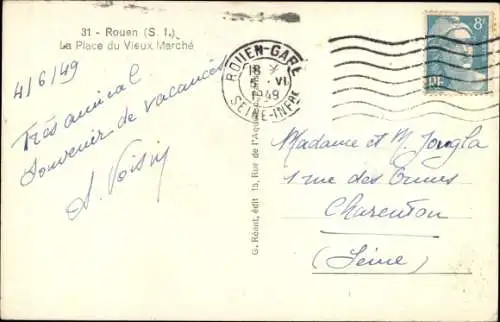 31 - Rouen (S. I.)
La Place du Vieux Marché
4/6/49
Très amical
souvenir de vacances
A. Voisin
ROUEN-GARE
18
VI
1949
SEINE-INFRE
8F
G. Réant, édit 1a, Rue de l'Aqu
Madame et M. Jougla
1 rue des Ormes
Charenton
(Seine)